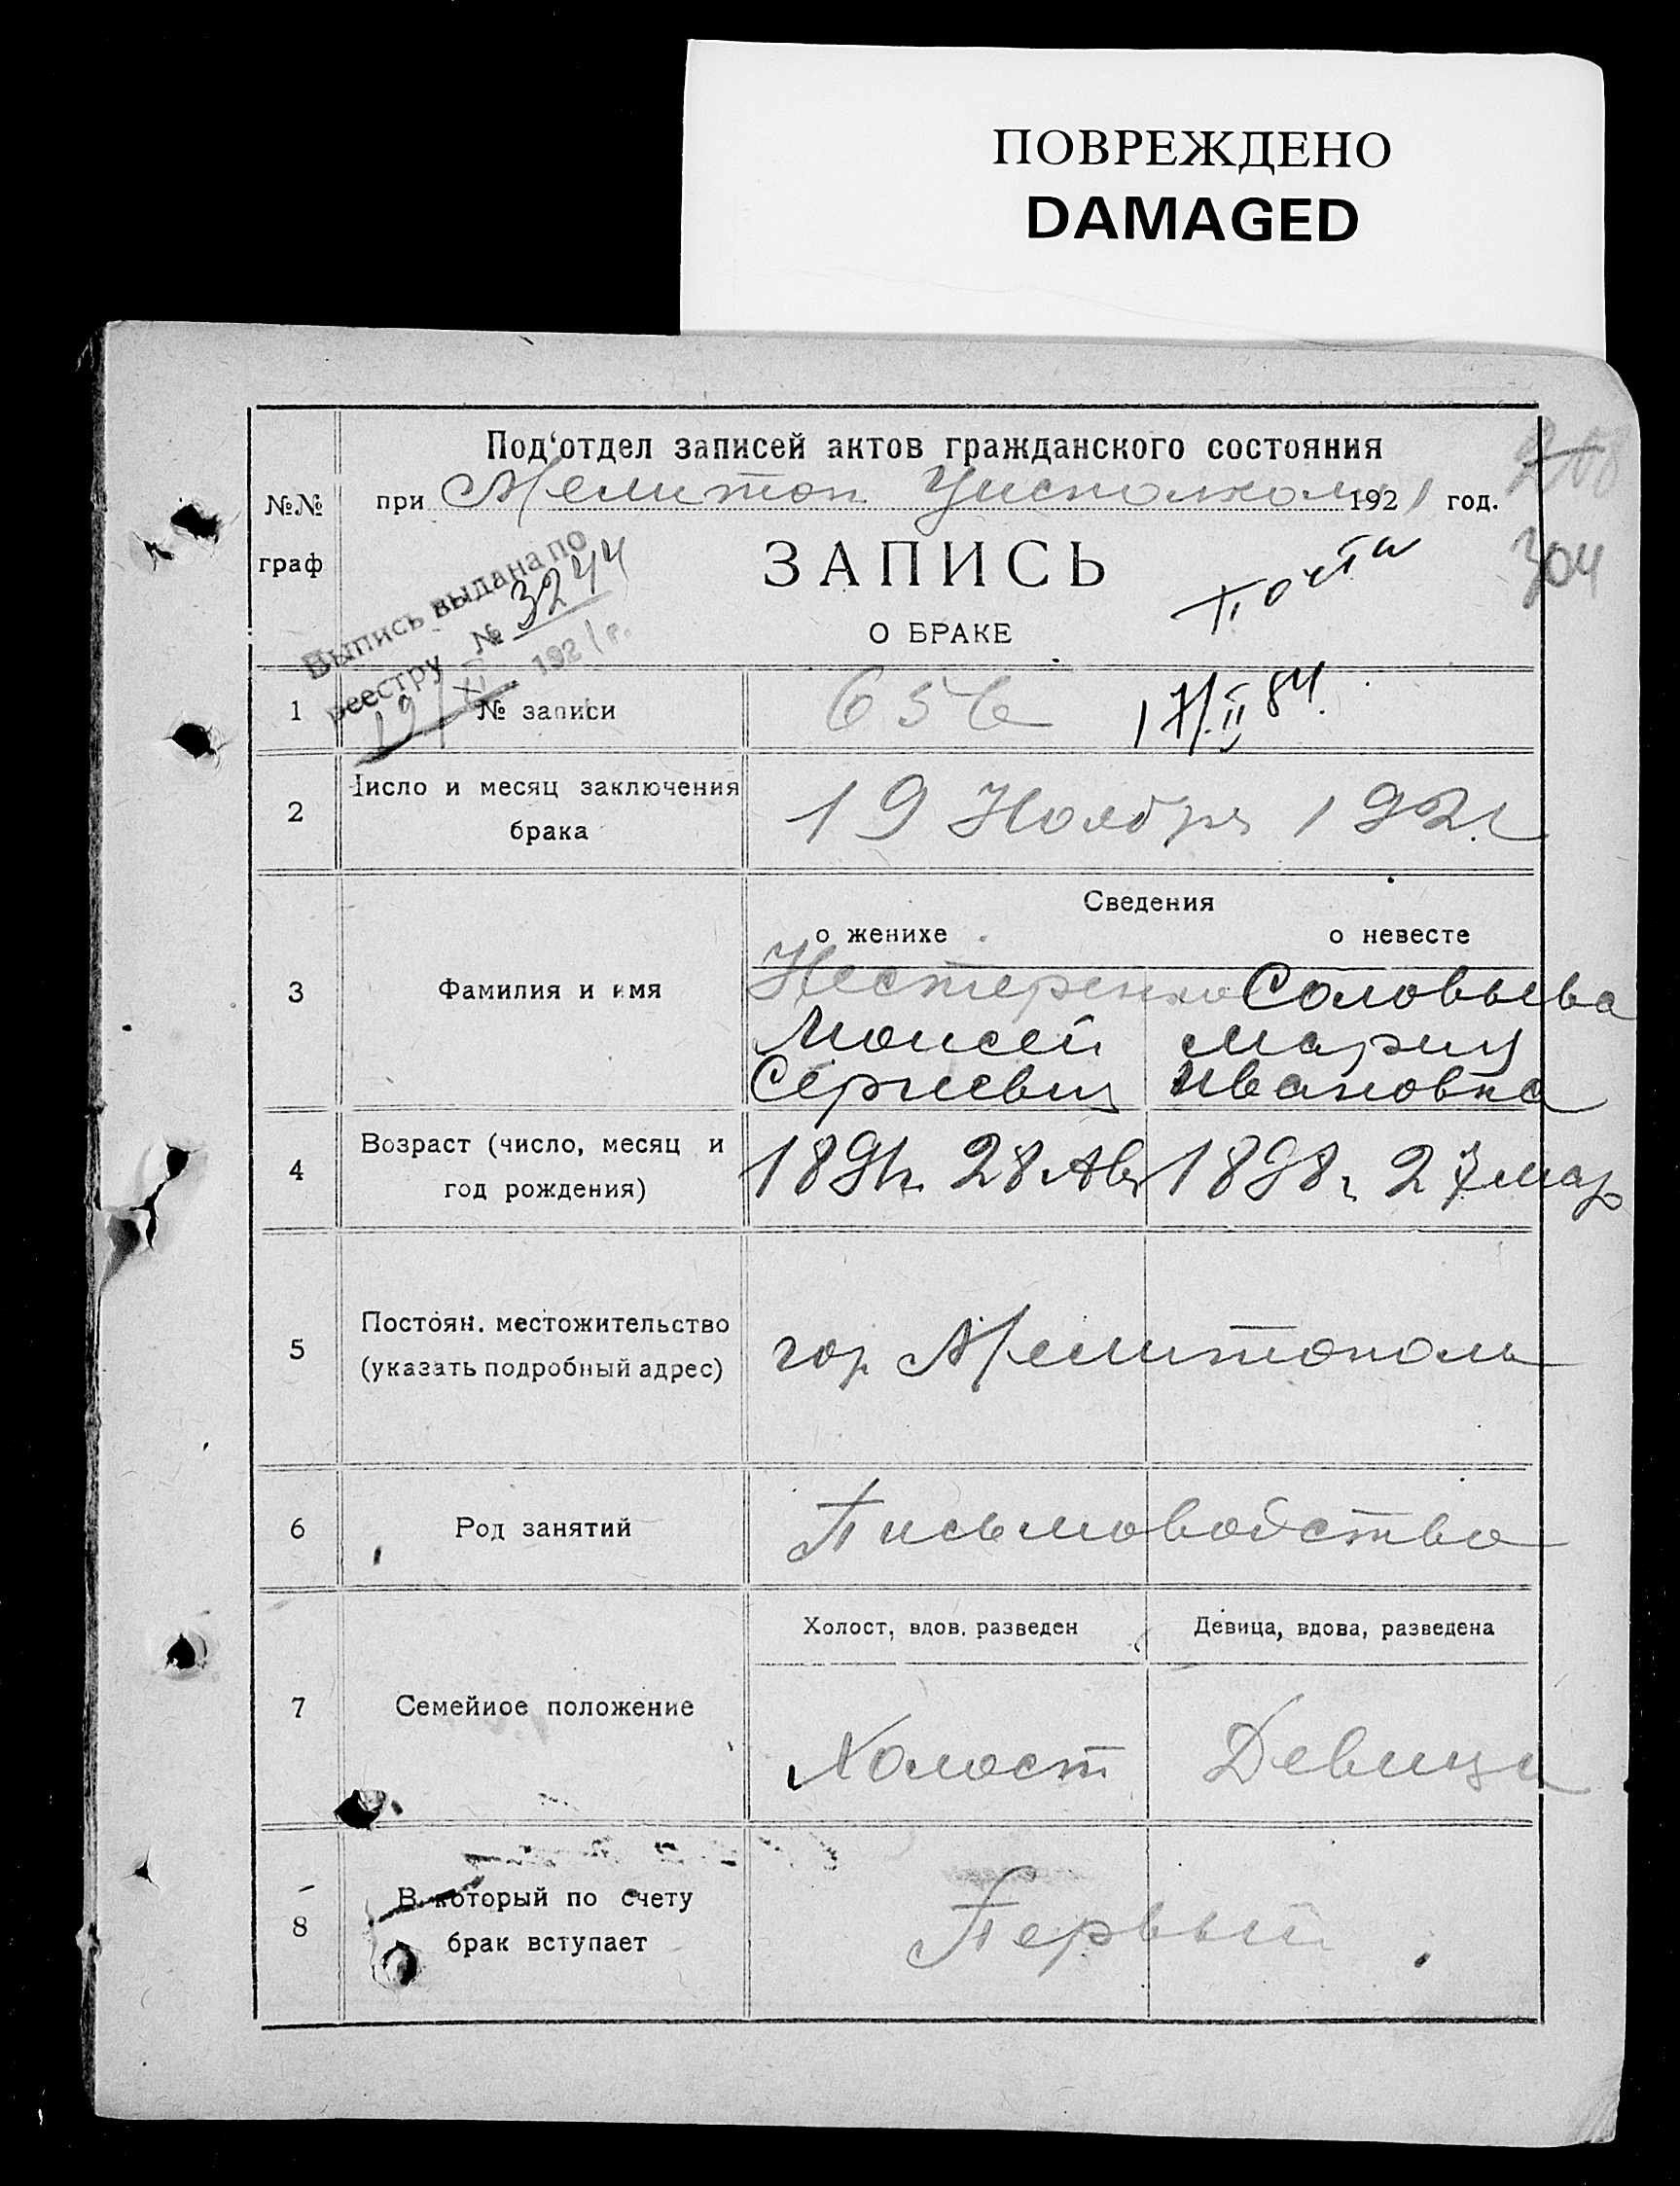 ПОВРЕЖДЕНО
DAMAGED
Под'отдел записей актов гражданского состояния
№№
граф
при Мелитоп. Уисполком 1921 год.
208
304
ЗАПИСЬ
О БРАКЕ
Выпись выдана по
реестру № 3244
19/XI 1921 г.
1
№ записи
656
2
Число и месяц заключения
брака
19 Ноября 1921
Сведения
о женихе
о невесте
3
Фамилия и имя
Нестеренко
Моисей
Сергиевич
Соловьева
Мария
Ивановна
4
Возраст (число, месяц и
год рождения)
28 Ав
1898 г. 27 мар
5
Постоян. местожительство
(указать подробный адрес)
гор Мелитополь
6
Род занятий
Письмоводство
7
Семейное положение
Холост, вдов, разведен
Девица, вдова, разведена
Холост
Девица
8
В который по счету
брак вступает
Первый